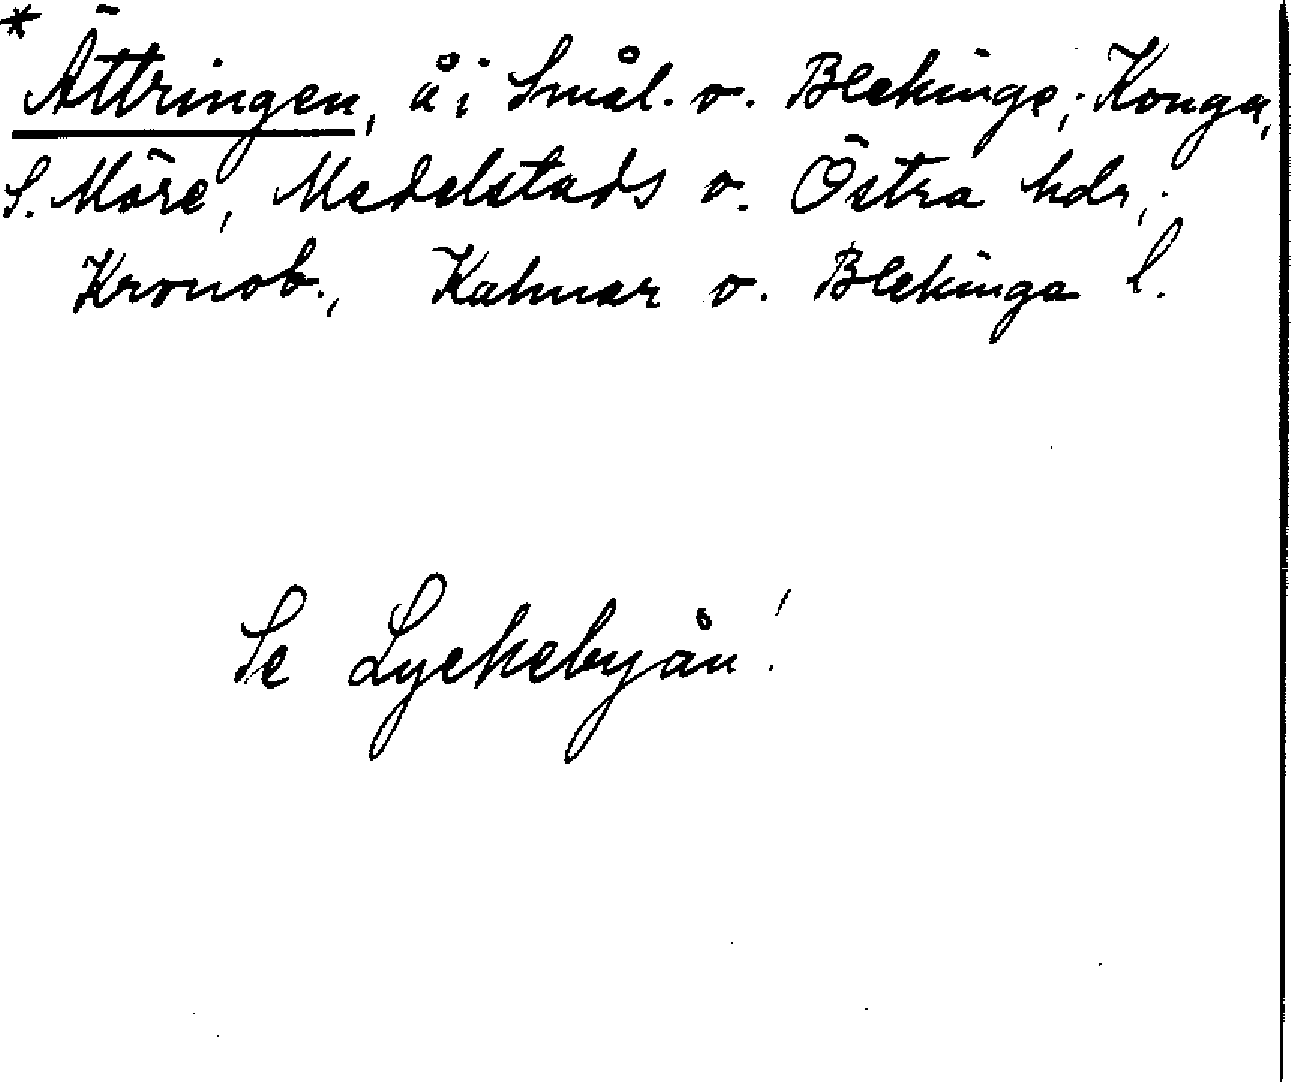 * Ättringen, å i Smål. o. Blekinge; Konga,
S. Möre, Medelstads o. Östra hdr;
Kronob., Kalmar o. Blekinge l.
Se Lyckebyån!